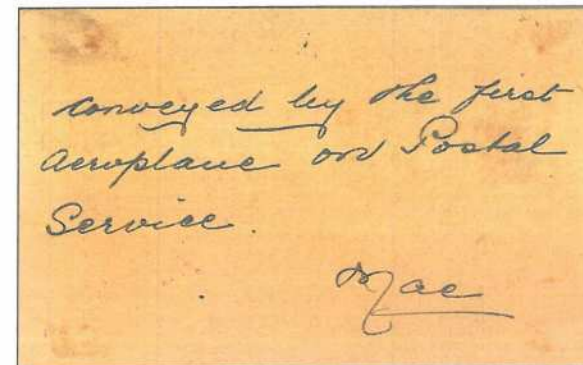 conveyed by the first
Aeroplane on Postal
Service.
Mac